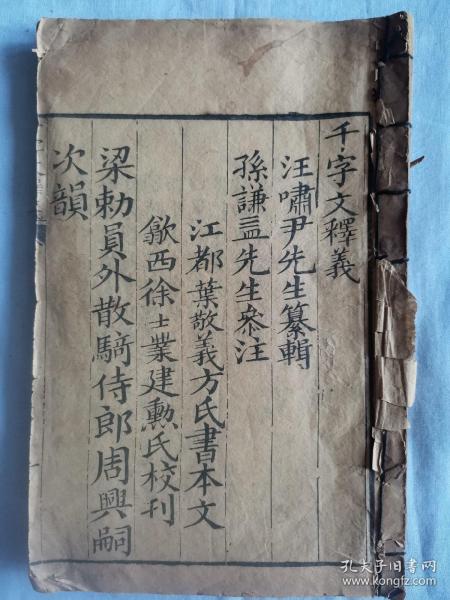 千字文釋義
汪嘯尹先生纂輯
孫謙益先生叅注
江都葉敬義方氏書本文
歙西徐士業建勲氏校刊
梁勅員外散騎侍郎周興嗣
次韻
孔夫子旧书网
www.kongfz.com